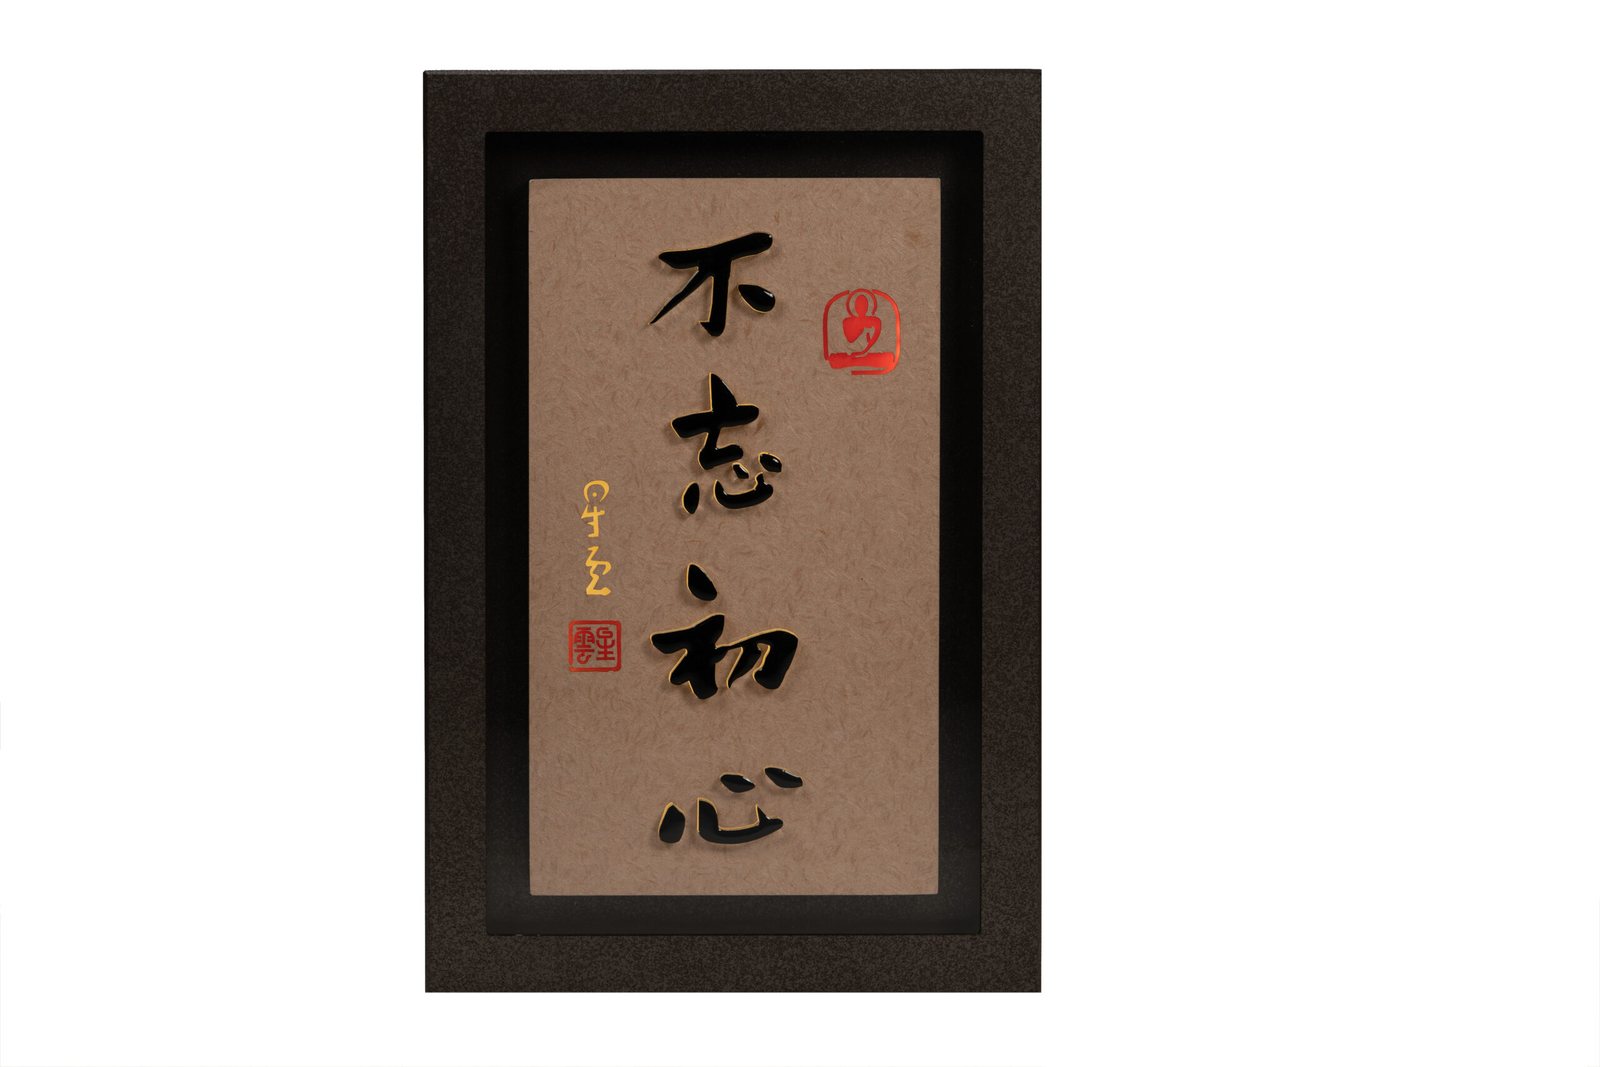 不忘初心
星云
星雲